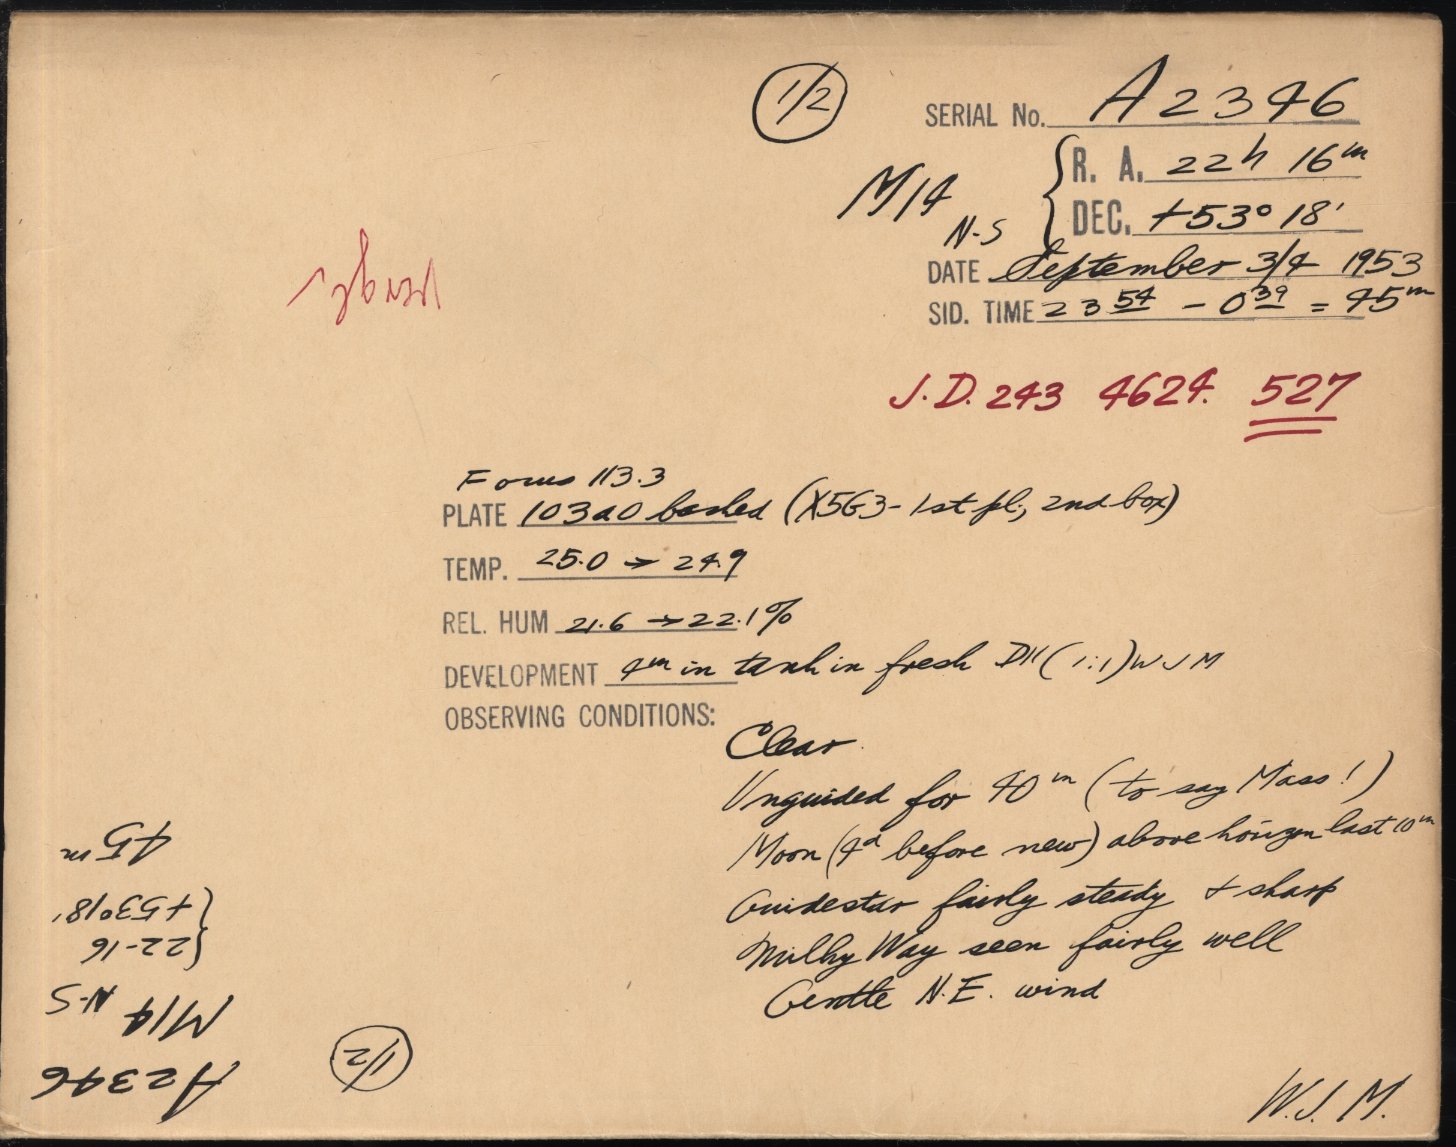 1/2
SERIAL No. A2346
M14 N-S
R. A. 22h 16m
DEC. +53° 18'
DATE September 3/4 1953
SID. TIME 23 54 - 0 39 = 45m
J.D. 243 4624. 527
Focus 113.3
PLATE 103aO backed (X5G3 - 1st pl., 2nd box)
TEMP. 25.0 → 24.9
REL. HUM 21.6 → 22.1%
DEVELOPMENT 4m in tank in fresh D11 (1:1) WJM
OBSERVING CONDITIONS:
Clear
Unguided for 40m (to say Mass!)
Moon (4d before new) above horizon last 10m
Guidestar fairly steady + sharp
Milky Way seen fairly well
Gentle N.E. wind
W.J.M.
1/2
A2346
M14 N-S
22-16
+53°18'
45m